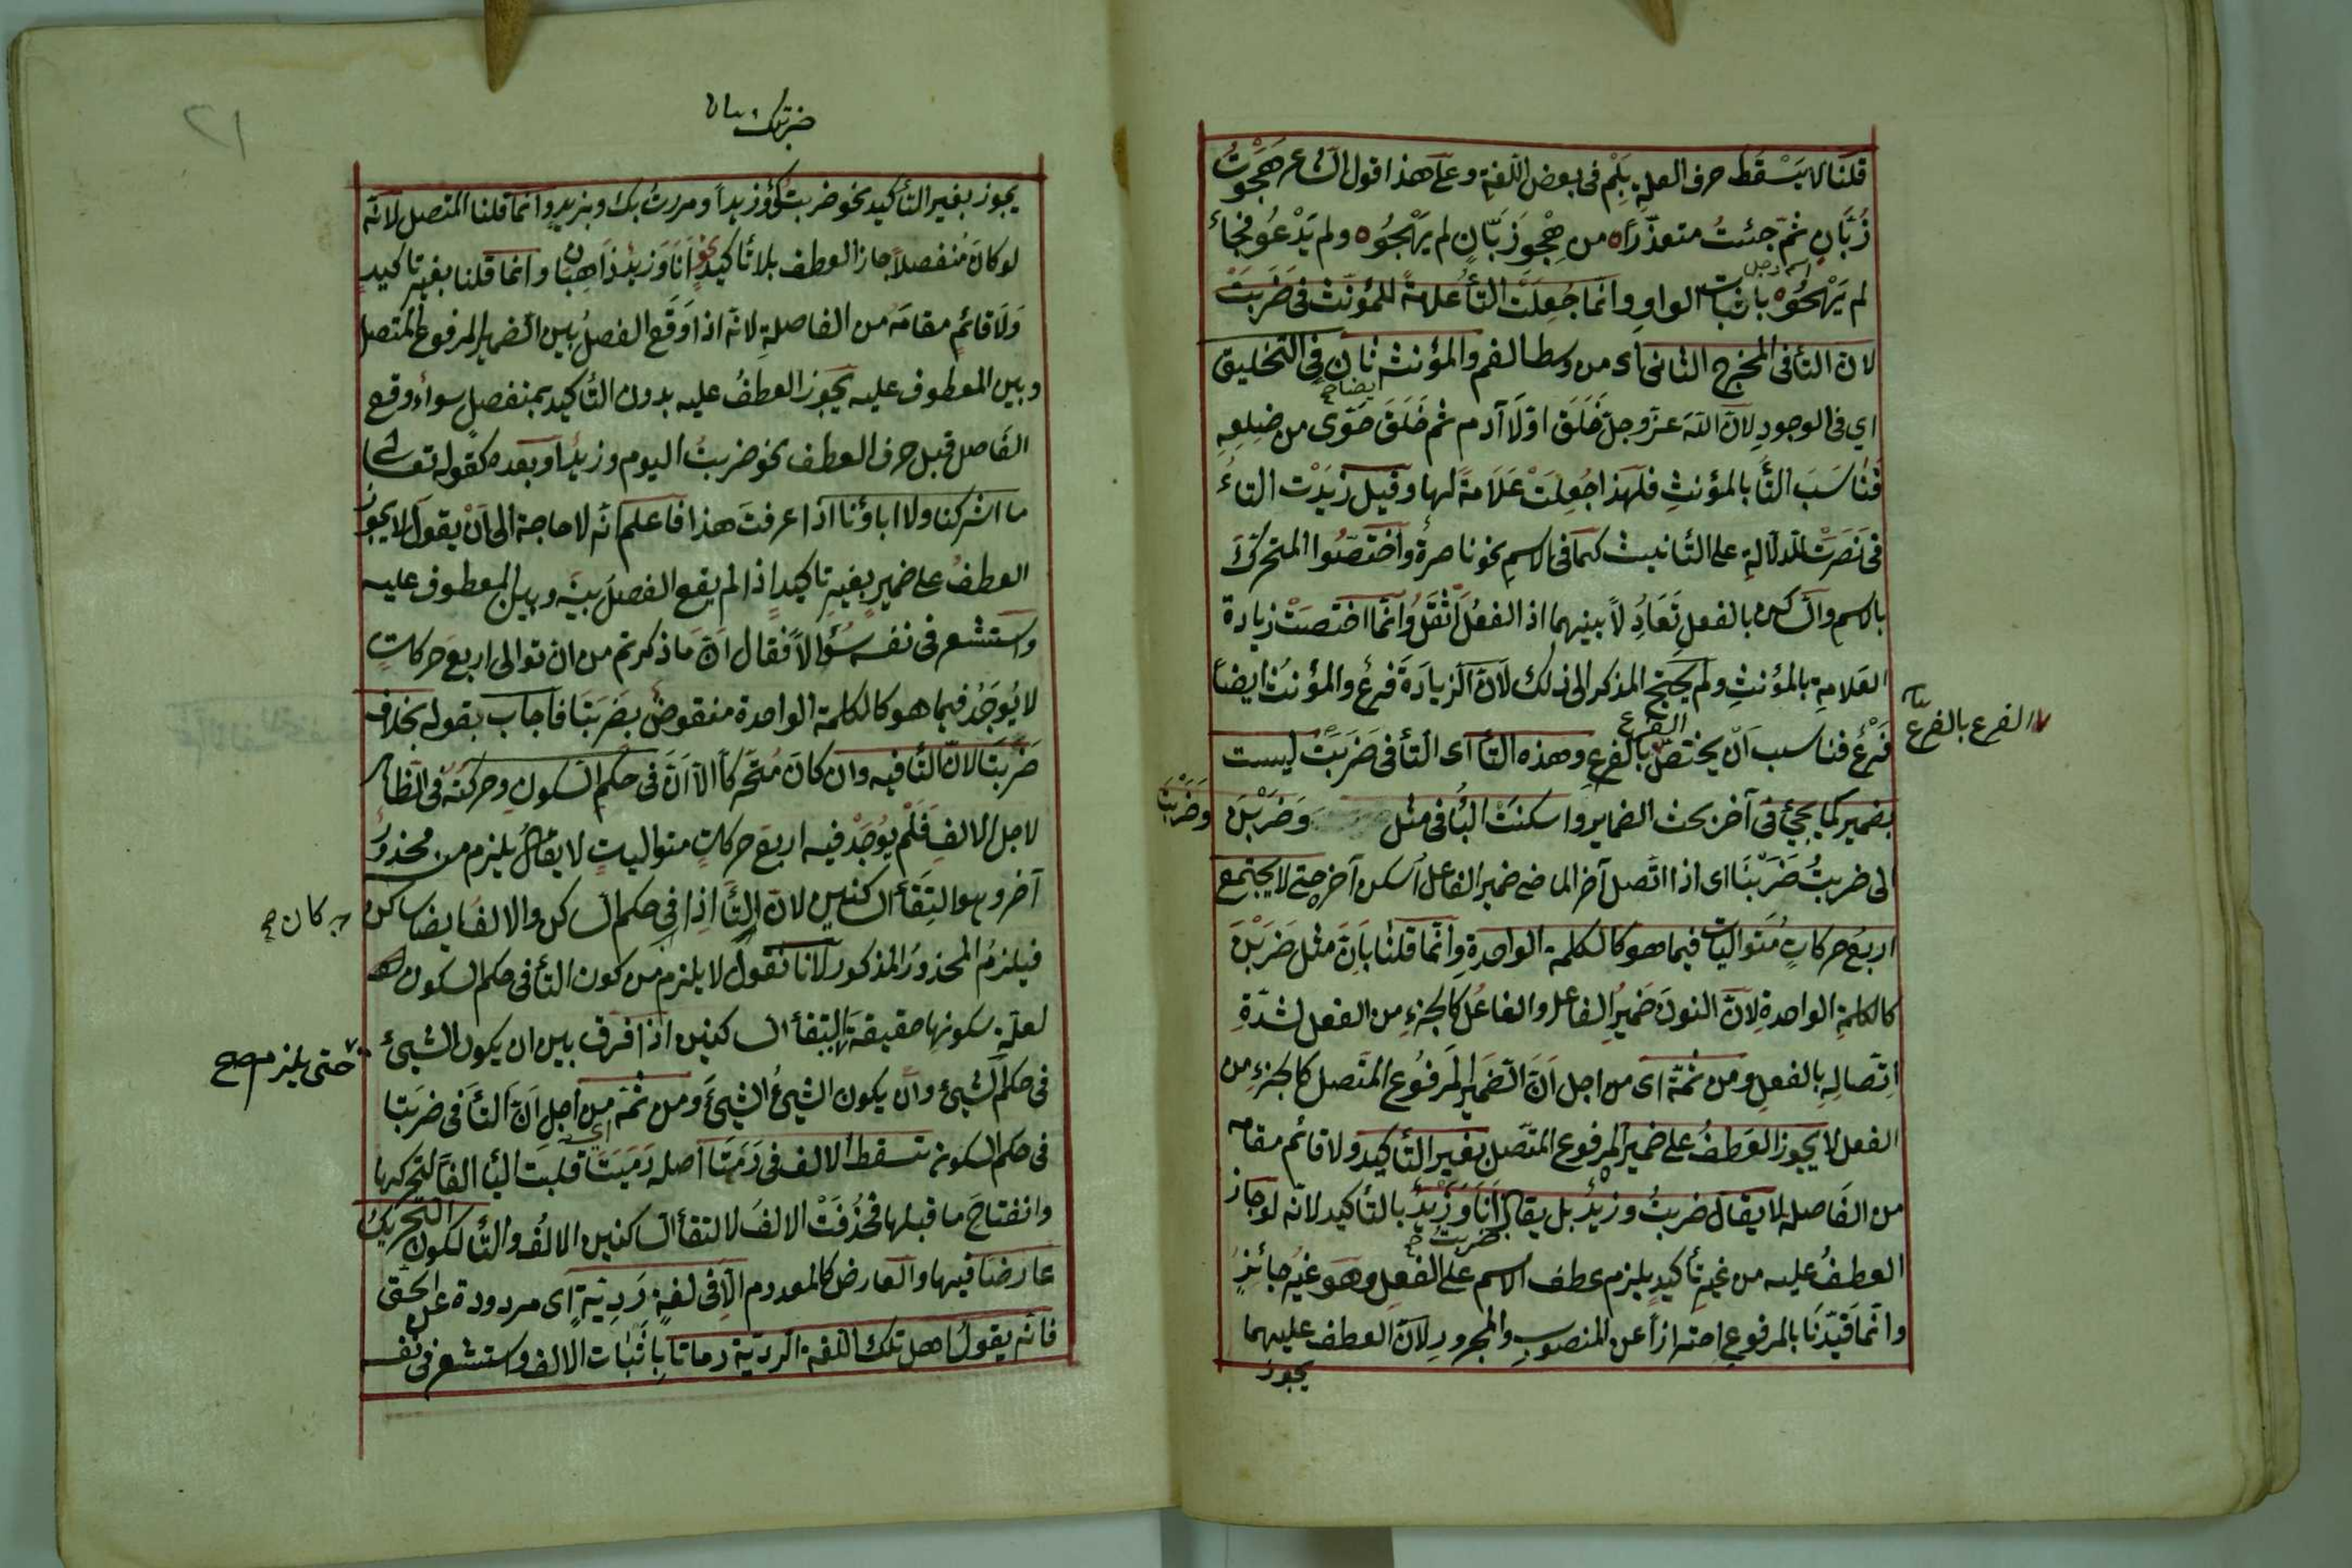 قلنا لا يَسْقُط حرف العلة بِلَمْ فى بعض اللّغة وعلى هذا قول الشاعر هَجَوْتُ
زَبَّانِ ثمّ جئتُ متعذّرًا ه من هِجْوِ زَبّانٍ لم يَهْجُوْ ه ولم يَدْعُو فجاء
لم يَهْجُوْ ه باثبات الواوِ وانّما جُعِلَتْ التأ علامةً للمؤنّث فى ضَرَبَتْ
اسم رجل
لان التأ فى المخرج الثانى اى من وسط الفم والمؤنث ثانٍ فى التخليق
ايضا صح
اي فى الوجودِ لانّ اللّه عزّ وجلّ خَلَقَ اوّلًا آدم ثم خَلَقَ حَوّى من ضِلعِهِ
فَنَاسَبَ التّأ بالمؤنثِ فلهذا جُعِلَتْ عَلَامَةً لها وقيل زِيَدْت التاءُ
فى نَصَرَتْ للدلالةِ على التّأنيث كما فى الاسمِ نحو ناصرة واختصّوا المتحرّكَ
بالاسم والساكن بالفعلِ تَعَادُلاً بينهما اذ الفعلُ اثقلُ وانّما اختصّتْ زيادة
العَلامةِ بالمؤنثِ ولم يحتج المذكر الى ذلك لانّ الزيادَةَ فرعٌ والمؤنثُ ايضاً
فَرْعٌ فناسب اَنْ يختصّ بالفرعِ وهذه التأ اى التأ فى ضَرَبَتْ ليست
الفرع
الفرع بالفرع
بضمير كما يجيُ فى آخر بحث الضماير واسكنَتْ البأ فى مثل وَضَرَبْنَ
وضَرَبْنَا
الى ضربتُ ضَرَبْنَا اى اذا اتّصل آخر الماضى ضمير الفاعل اُسكن آخره حتى لا يجتمع
اربعُ حركاتٍ مُتواليات فيما هو كالكلمة الواحدةِ وانّما قلنا بانّ مثل ضَرَبْنَ
كالكلمةِ الواحدةِ لانّ النونَ ضميرُ الفاعل والفاعُل كالجزءِ من الفعل لشدّةِ
اِتّصالِهِ بالفعلِ ومن ثمّة اى من اجل اَنّ الضميرَ المَرفُوع المتّصل كالجزءِ من
الفعل لا يجوز العَطفُ على ضمير المرفوع المتّصل بغير التأكيد ولا قائم مقامه
من الفَاصلة لا يقال ضربتُ وزيدٌ بل يقال اَنَا وَزَيْدٌ بالتأكيد لانّه لو جاز
ضربت صح
العطفُ عليه من غيرِ تأكيدٍ يلزم عطف الاسم على الفعلِ وهو غيرُ جائزٍ
وانّما قيّدْنَا بالمرفوع احترازاً عن المنصوبِ والمجرورِ لانّ العطف عليهما
يجوز
٢١
ضربتك
يجوز بغير التأكيد نحو ضربتُكَ وزيداً ومررتُ بك وبزيدٍ وانّما قلنا المتصل لانّه
لو كانَ مُنفصلاً جاز العطف بلا تأكيدٍ نحو اَنَا وَزيدٌ ذَاهِبَان وانّما قلنا بغير تاكيدٍ
وَلَا قائمٍ مقامَهُ من الفاصلةِ لانّه اذا وَقَع الفصلُ بين الضمير المرفوع المتصل
وبين المعطوف عليه يجوز العطفُ عليه بدون التأكيد بمنفصلٍ سواءٌ وقع
الفَاصل قبل حرف العطف نحو ضربتُ اليوم وزيدٌ او بعده كقوله تعالى
ما اشركنا ولا اباؤنا اذا عرفتَ هذا فاعلم انّه لا حاجة الى اَنْ يقول لا يجوز
العطفُ على ضميرٍ بغيرِ تاكيدٍ اذا لم يقع الفصل بينَه وبين المعطوف عليه
واستشعر فى نفسه سُؤالاً فقال اَنّ مَا ذكرتم من ان توالى اربعَ حركاتٍ
لا يُوجَدُ فيما هو كالكلمة الواحدة منقوضٌ بضَرَبَتَا فاجاب بقوله بخلاف
ضَرَبَتَا لانّ التّأ فيه وان كان مُتحرّكاً الّا اَنّه فى حكم السّكون وحركتهُ فى الظّاهر
لاجل الالفِ فَلَمْ يوُجَدْ فيه اربعَ حركاتٍ متوالياتٍ لا يقالُ يلزم من محذورٌ
آخر وهو التِقَأ الساكنين لانّ التّأ اذا فى حكم الساكن والالف ايضا ساكن
كان صح
فيلزمُ المحذورُ المذكور لانّا نقُولُ لا يلزم من كون التأ فى حكم السكون
لعلّةٍ سكونها حقيقةً التِقَأ الساكنين اذ افرق بين ان يكون الشيئ
حتى يلزم صح
فى حكم الشيئ وانْ يكون الشيئ الشيئَ ومن ثمّة من اجلِ انّ التأَ فى ضربَتا
اى
فى حكم السكون تسقط الالف فى رَمَتَا اصله رَمَيَتَا قلبت اليأ الفاً لتحركها
وانفتاحِ ما قبلها فحُذفَتْ الالفَ لالتقأ الساكنين الالُفُ والتّأ لكون التحريكُ
عارضًا فيها والعارض كالمعدوم الّا فى لغةٍ رَدِيّةٍ اى مردودة عن الحقّى
فانه يقولُ اهل تلك اللغة الرديّة رماتا بِاثباتِ الالف واستشعر فى نفسه